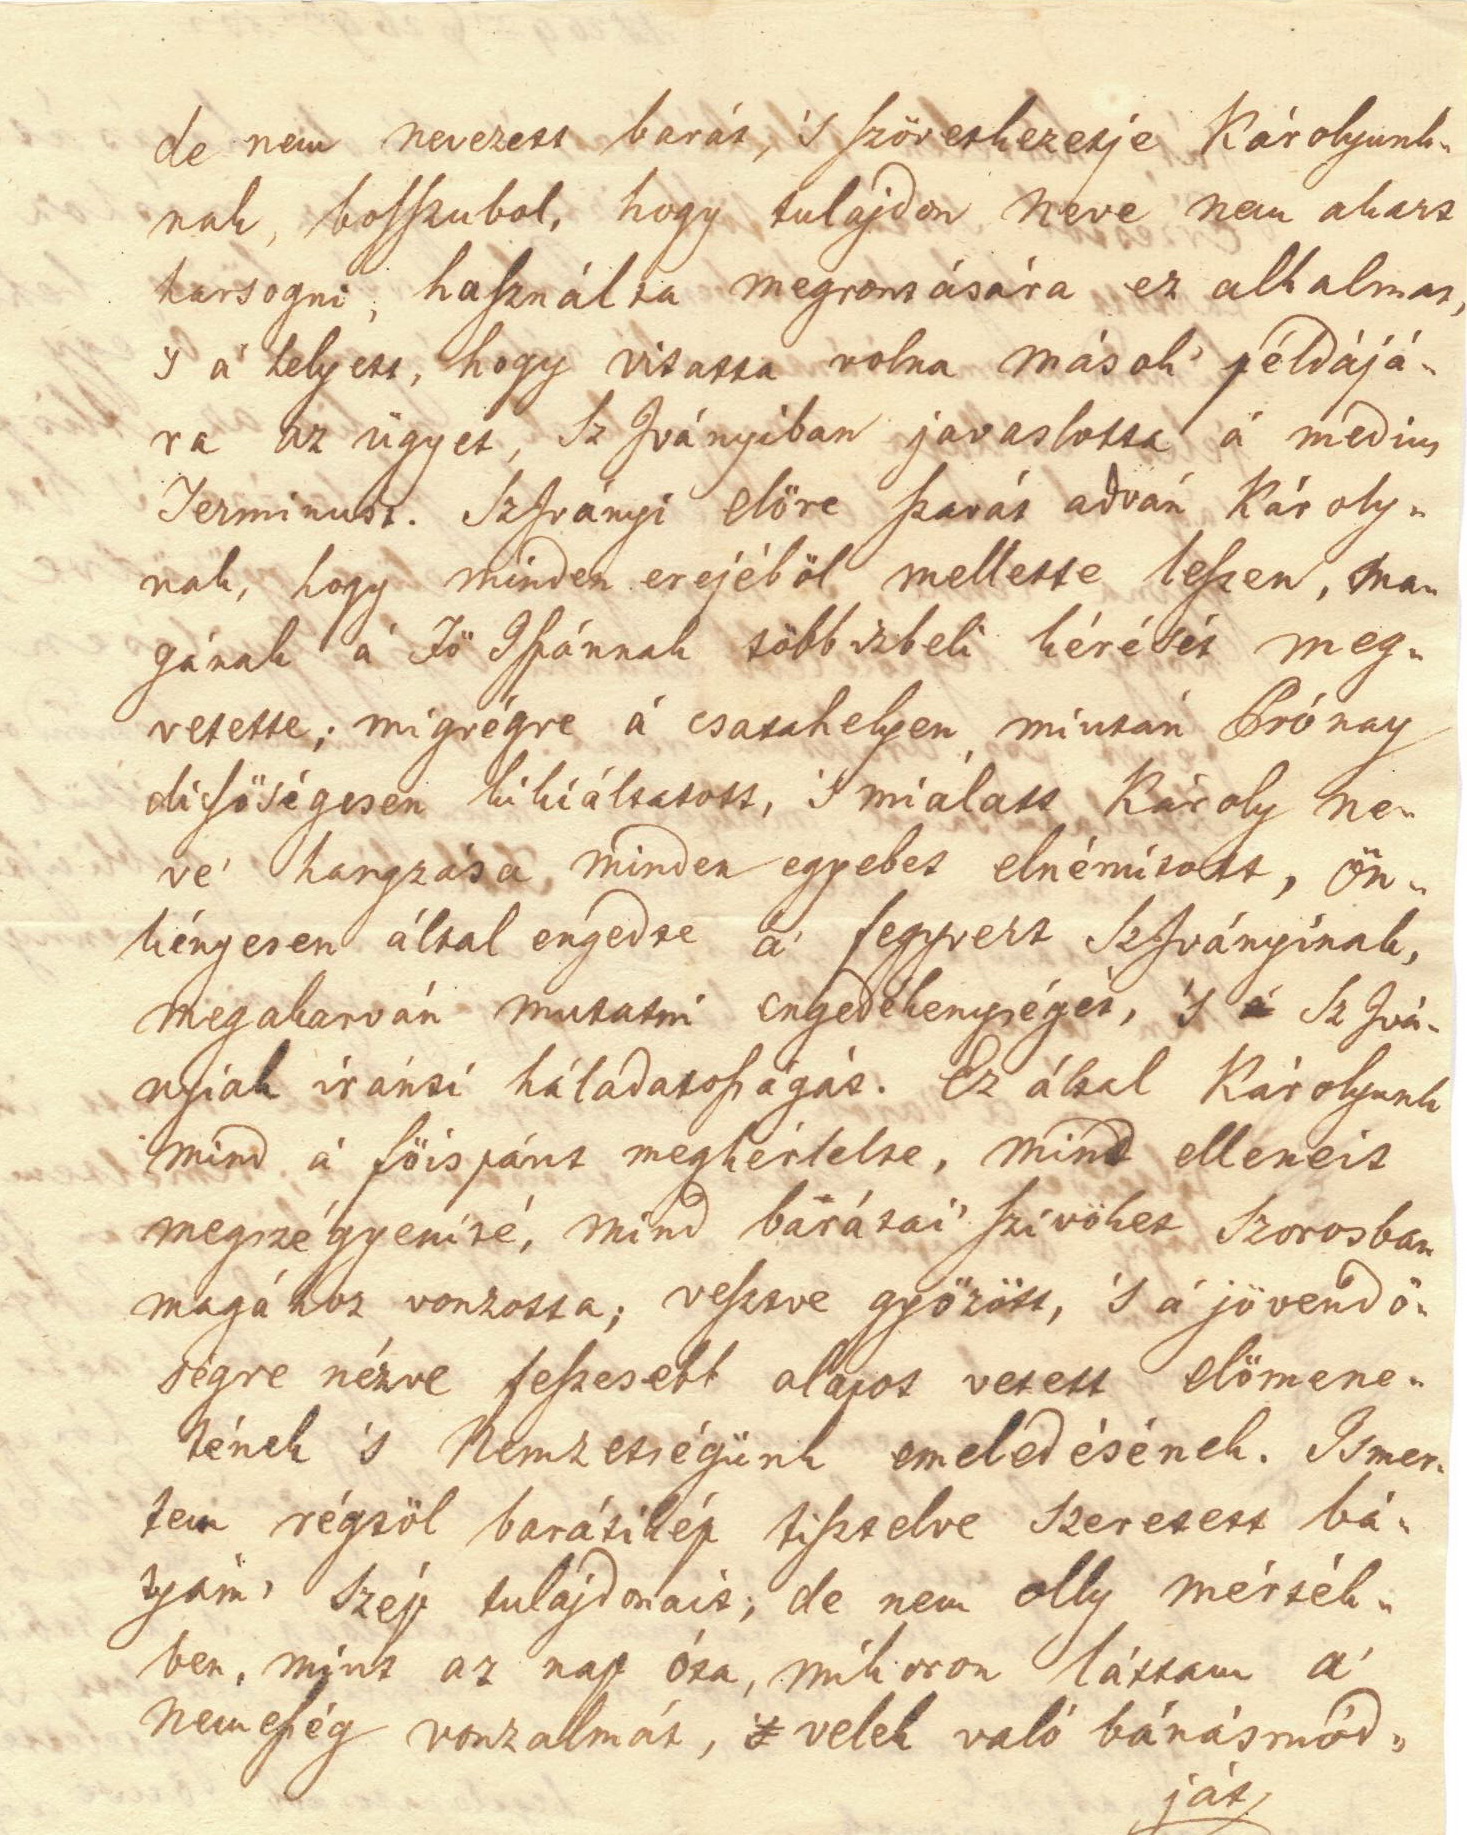 de nem nevezett barát, 's szövetkezetje Károlyunk-
nak, bosszubol, hogy tulajdon neve nem akart
harsogni, használta megrontására ez alkalmat,
s á helyett, hogy vitatta volna mások' példájá-
ra az ügyet, Sz Iványiban javaslotta á medius
Terminust. SzIványi elöre szavát adván Károly-
nak, hogy minden erejéböl mellette leszen, ma-
gának á Fö Ispánnak többizbeli kérését meg-
vetette; mígvégre á csatahelyen miután Prónay
dicsöségesen kikiáltatott, 's miálatt Károly ne-
vé' hangzása minden egyebet elnémitott, ön-
kényesen által engedte á fegyvert SzIványinak,
megakarván mutatni engedékenységét, 's á Sz Ivá-
nyiak iránti háládatosságát. Ez által Károlyunk
mind á föispánt megkérlelte, mind elleneit
megszégyenité, mind barátai' szivöket szorosban
magához vonzotta; vesztve gyözött, 's á jövendö-
ségre nézve feszesebb alapot vetett elömene-
tének 's Nemzetségünk emeledésének. Ismer-
tem régtöl barátikép tisztelve szeretett bá-
tyám' szép tulajdonait; de nem olly mérték-
ben, mint az nap óta, mikoron láttam a'
nemesség vonzalmát, 's velek való bánásmód-
ját